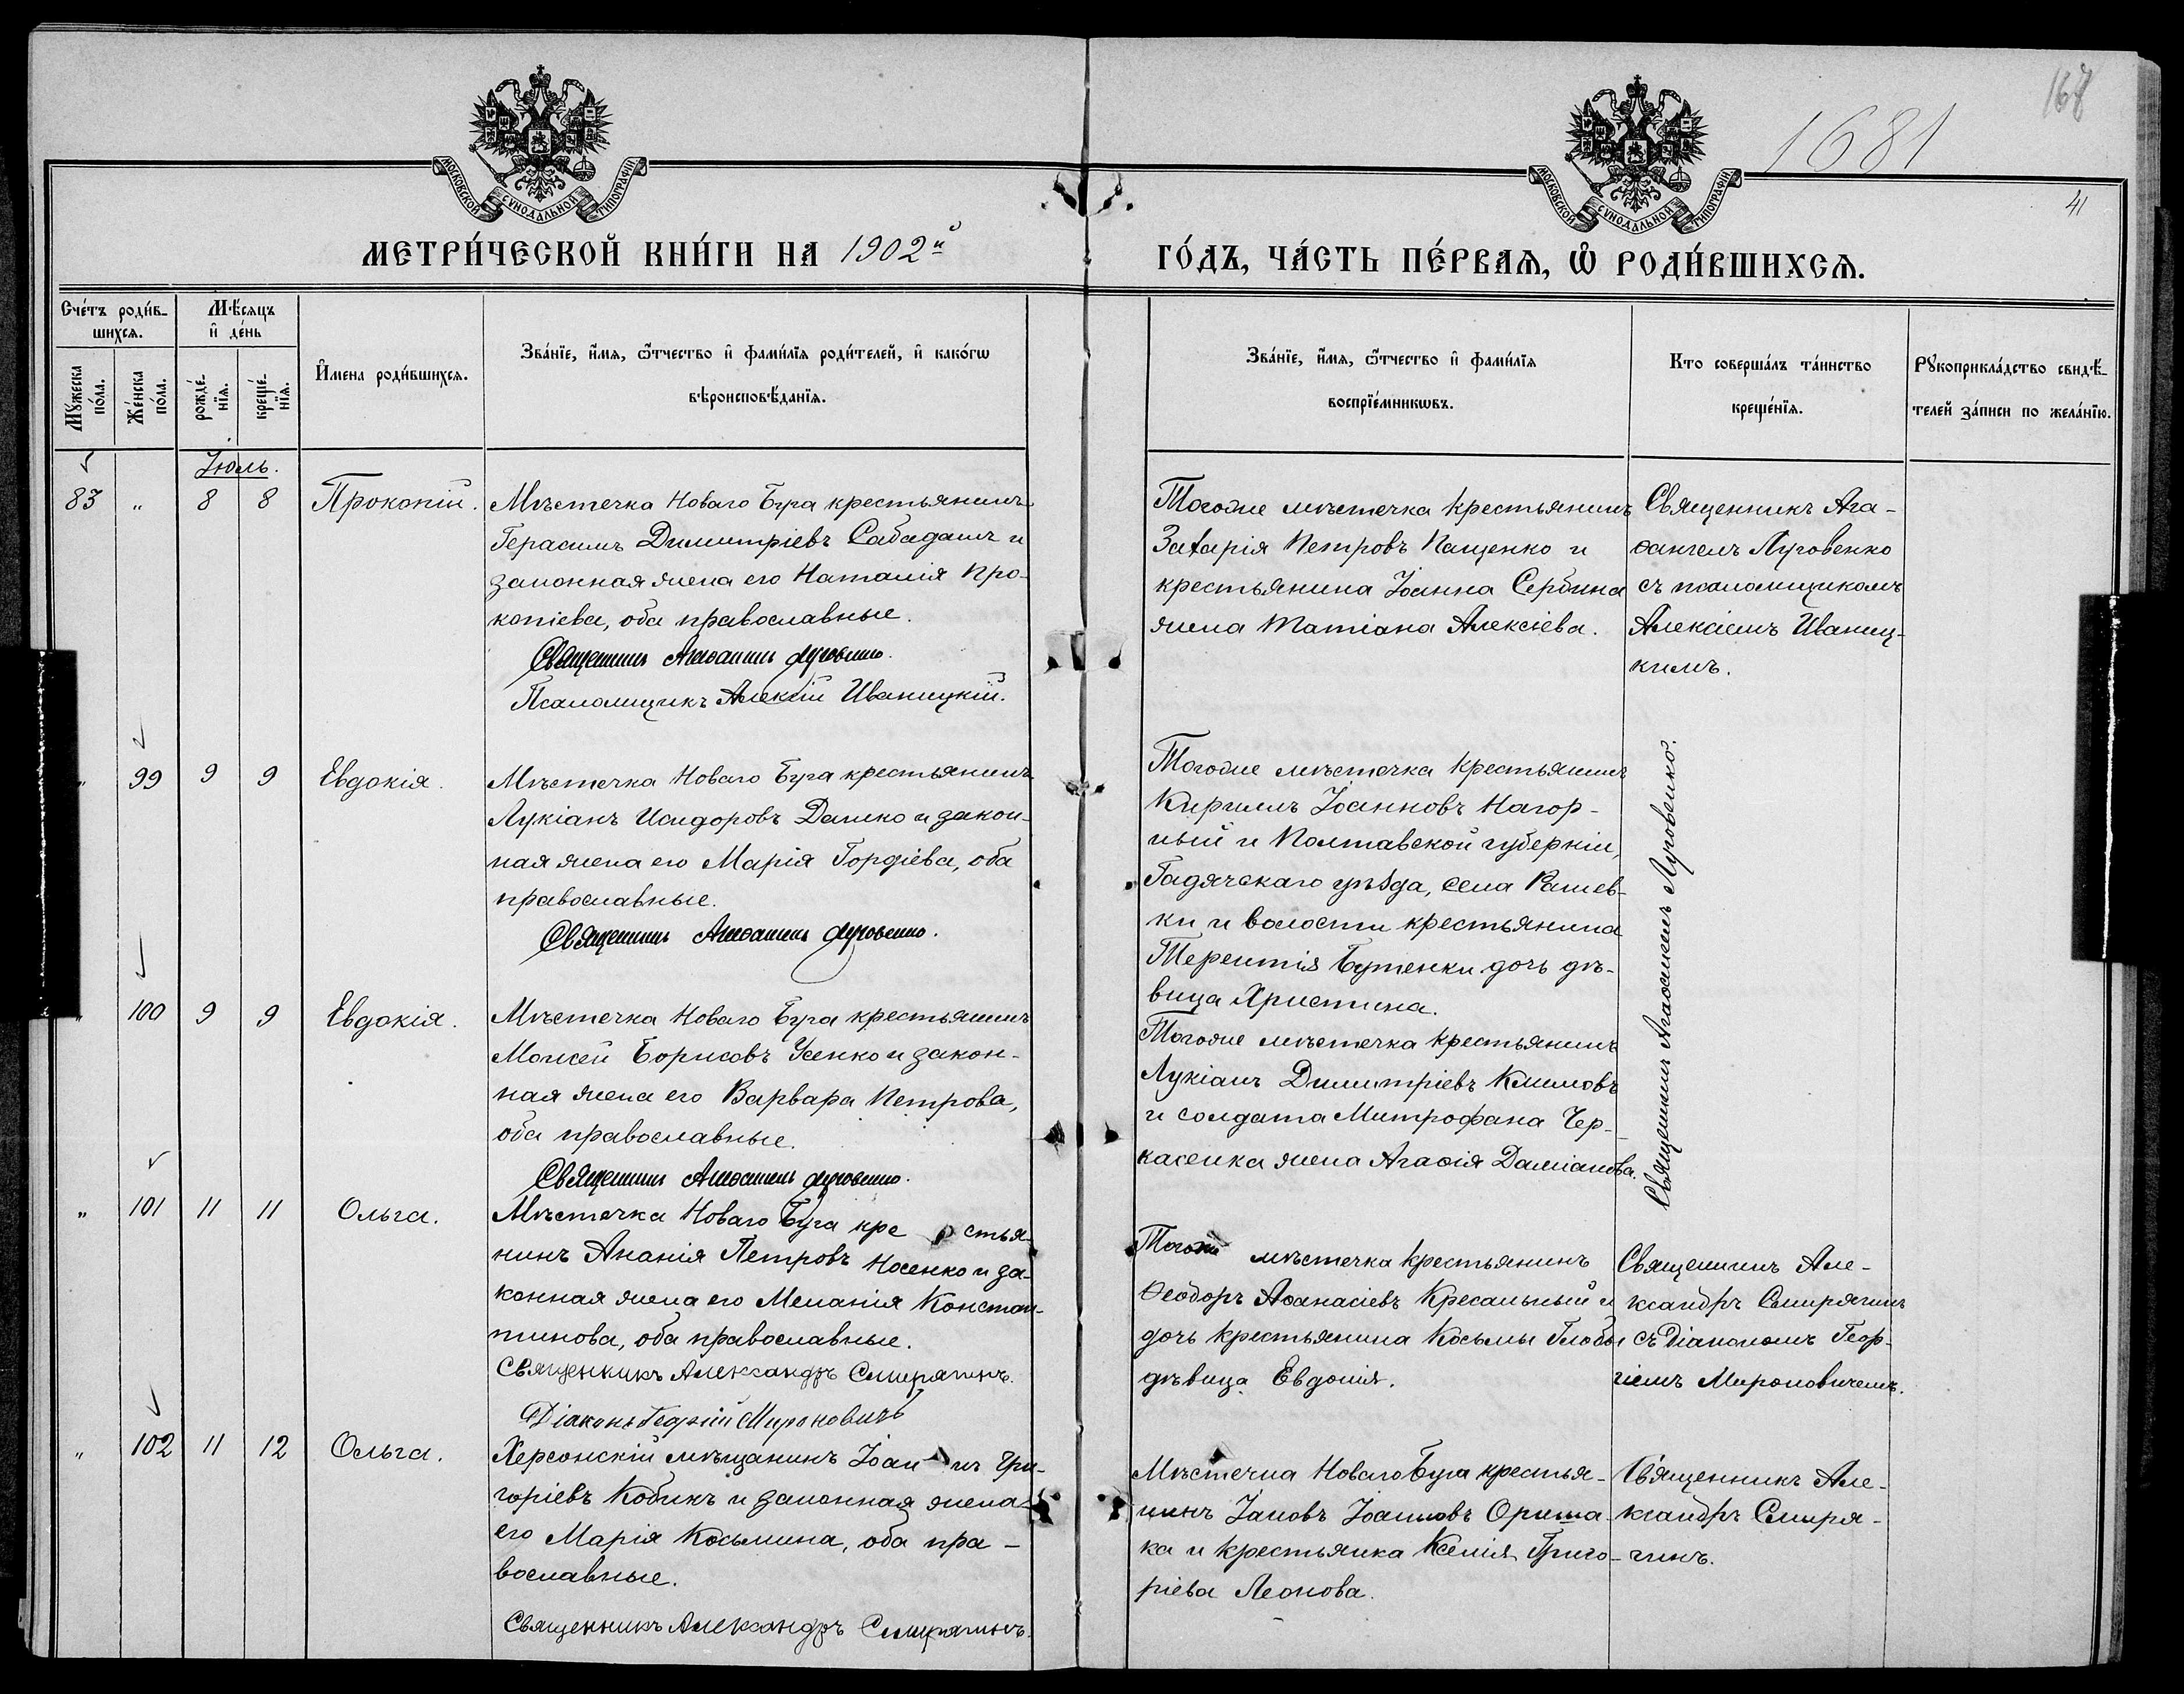 168
1681
41
МОСКОВСКОЙ СѴНОДАЛЬНОЙ ТИПОГРАФІИ
МОСКОВСКОЙ СѴНОДАЛЬНОЙ ТИПОГРАФІИ
МЕТРИ́ЧЕСКОЙ КНИ́ГИ НА 1902й
ГО́ДЪ, ЧА́СТЬ ПЕ́РВАѦ, Ѽ РОДИ́ВШИХСѦ.
Сче́тъ роди́в-
шихсѧ.
Мѣ́сѧцъ
и҆ де́нь
Мꙋ́жеска
по́ла.
Же́нска
по́ла.
рожде́-
нїѧ.
креще́-
нїѧ.
И҆мена роди́вшихсѧ.
Зва́нїе, и҆́мѧ, ѻ҆́тчество и҆ фами́лїѧ роди́телей, и҆ како́гѡ
вѣроисповѣ́данїѧ.
Зва́нїе, и҆́мѧ, ѻ҆́тчество и҆ фами́лїѧ
воспрїе́мникѡвъ.
Кто соверша́лъ та́инство
креще́нїѧ.
Рꙋкоприкла́дство свидѣ́-
телей за́писи по жела́нїю.
Іюль.
83 " 8 8 Прокопій.
Мѣстечка Новаго Буга крестьянинъ
Герасимъ Димитріевъ Сабадашъ и
законная жена его Наталія Про-
копіева, оба православные.
Священникъ Агаѳангелъ Луговенко.
Псаломщикъ Алексій Иваницкій.
Тогоже мѣстечка крестьянинъ
Захарія Петровъ Пащенко и
крестьянина Іоанна Сербина
жена Татіана Алексіева.
Священникъ Ага-
ѳангелъ Луговенко
съ псаломщикомъ
Алексіемъ Иваниц-
кимъ.
" 99 9 9 Евдокія.
Мѣстечка Новаго Буга крестьянинъ
Лукіанъ Исидоровъ Дашко и закон-
ная жена его Марія Гордіева, оба
православные.
Священникъ Агаѳангелъ Луговенко.
Тогоже мѣстечка крестьянинъ
Кириллъ Іоанновъ Нагор-
ный и Полтавской губерніи,
Гадячскаго уѣзда, села Рашев-
ки и волости крестьянина
Терентія Бутенки дочь дѣ-
вица Христина.
Священникъ Агаѳангелъ Луговенко.
" 100 9 9 Евдокія.
Мѣстечка Новаго Буга крестьянинъ
Моисей Борисовъ Усенко и закон-
ная жена его Варвара Петрова,
оба православные.
Священникъ Агаѳангелъ Луговенко.
Тогоже мѣстечка крестьянинъ
Лукіанъ Димитріевъ Климовъ
и солдата Митрофана Чер-
касенка жена Агаѳія Даміанова.
" 101 11 11 Ольга.
Мѣстечка Новаго Буга кре стья-
нинъ Ананія Петровъ Носенко и за-
конная жена его Меланія Констан-
тинова, оба православные.
Священникъ Александръ Смирягинъ.
Діаконъ Георгій Мироновичъ
Тогоже мѣстечка крестьянинъ
Ѳеодоръ Аѳанасіевъ Кресальный и
дочь крестьянина Косьмы Глобы
дѣвица Евдокія.
Священникъ Але-
ксандръ Смирягинъ
съ Діакономъ Геор-
гіемъ Мироновичемъ.
" 102 11 12 Ольга.
Херсонскій мѣщанинъ Іоан нъ Гри-
горіевъ Кобикъ и законная жена
его Марія Косьмина, оба пра-
вославные.
Священникъ Александръ Смирягинъ.
Мѣстечка Новаго Буга крестья-
нинъ Іаковъ Іоанновъ Ориша-
ка и крестьянка Ксенія Григо-
ріева Леонова.
Священникъ Але-
ксандръ Смиря-
гинъ.